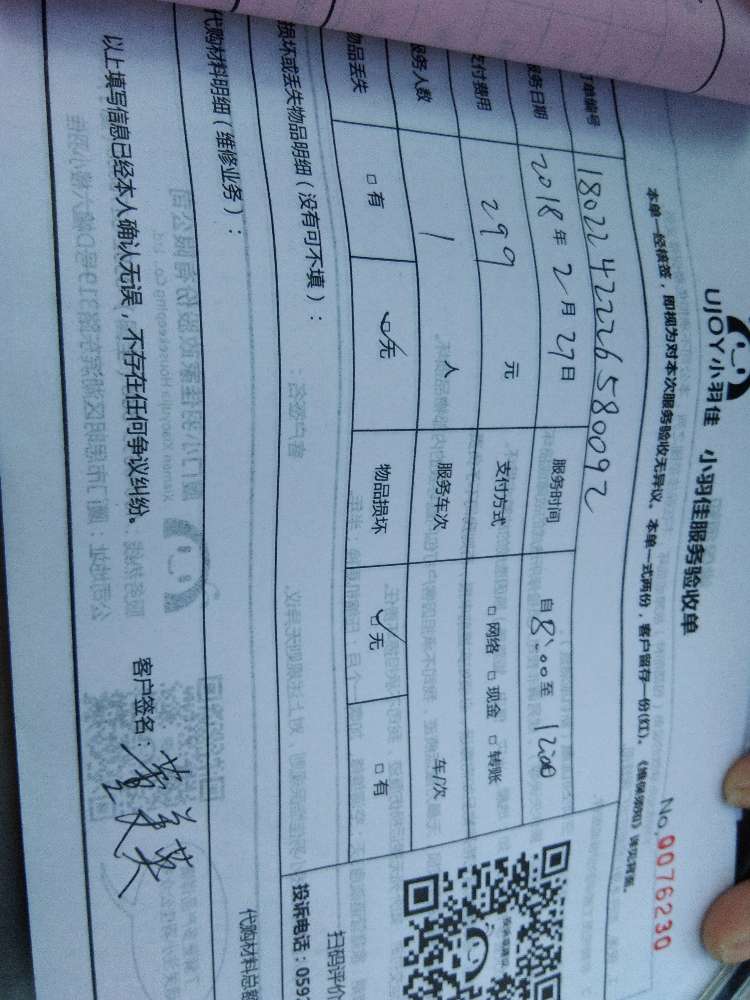 UJOY小羽佳 小羽佳服务验收单
No.0076230
本单一经核签，即视为对本次服务验收无异议。本单一式两份，客户留存一份(红)。《维保须知》详见背面。
订单编号 18022422226580092
服务日期 2018年2月27日 服务时间 自8:00至12:00
支付费用 299元 支付方式 □网络 □现金 □转账
服务人数 1人 服务车次 车/次
物品丢失 □有 ☑无 物品损坏 ☑无 □有
损坏或丢失物品明细（没有可不填）：
扫码评价
投诉电话：059
代购材料明细（维修业务）：
代购材料总额
以上填写信息已经本人确认无误，不存在任何争议纠纷。
客户签名：